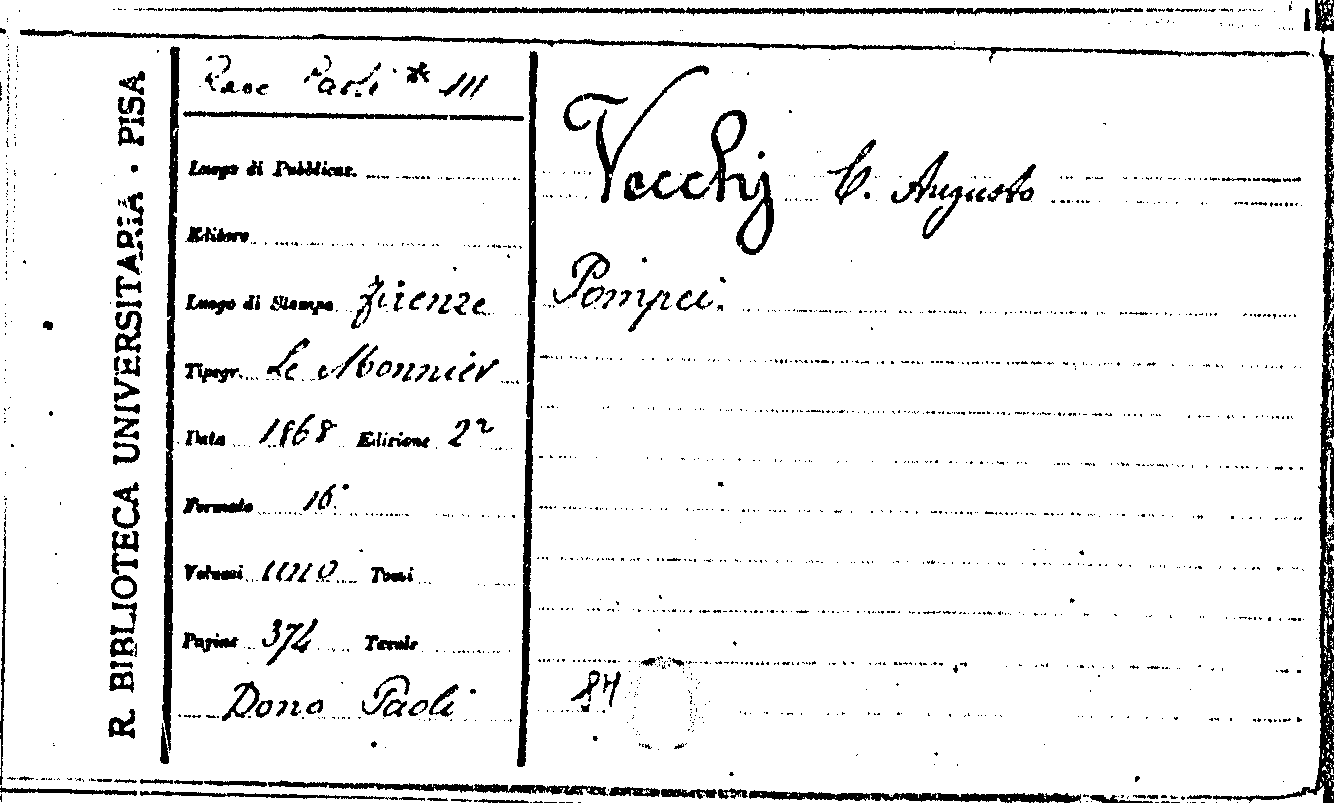 R. BIBLIOTECA UNIVERSITARIA · PISA
Racc Paoli * III
Luogo di Pubblicaz.
Editore
Luogo di Stampa Firenze
Tipogr. Le Monnier
Data 1868 Edizione 2ª
Formato 16°
Volumi uno Tomi
Pagine 374 Tavole
Dono Paoli
Vecchj C. Augusto
Pompei.
84